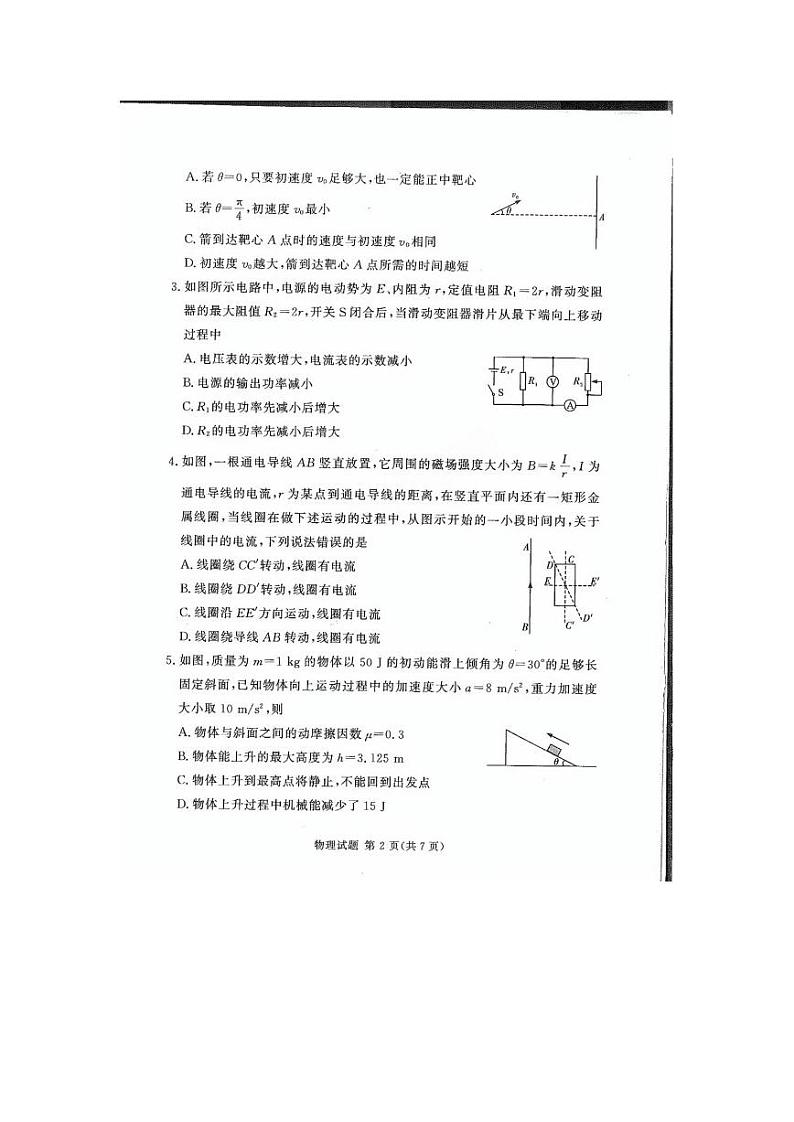 A. 若 θ=0,只要初速度 v₀足够大,也一定能正中靶心
B. 若 θ=π/4,初速度 v₀最小
C. 箭到达靶心 A 点时的速度与初速度 v₀相同
D. 初速度 v₀越大,箭到达靶心 A 点所需的时间越短
v₀
θ
A
3. 如图所示电路中,电源的电动势为 E、内阻为 r,定值电阻 R₁=2r,滑动变阻
器的最大阻值 R₂=2r,开关 S 闭合后,当滑动变阻器滑片从最下端向上移动
过程中
A. 电压表的示数增大,电流表的示数减小
B. 电源的输出功率减小
C. R₁的电功率先减小后增大
D. R₂的电功率先减小后增大
E,r
S
R₁
V
R₂
A
4. 如图,一根通电导线 AB 竖直放置,它周围的磁场强度大小为 B=k I/r,I 为
通电导线的电流,r 为某点到通电导线的距离,在竖直平面内还有一矩形金
属线圈,当线圈在做下述运动的过程中,从图示开始的一小段时间内,关于
线圈中的电流,下列说法错误的是
A. 线圈绕 CC′转动,线圈有电流
B. 线圈绕 DD′转动,线圈有电流
C. 线圈沿 EE′方向运动,线圈有电流
D. 线圈绕导线 AB 转动,线圈有电流
A
D
C
E
E′
B
C′
D′
5. 如图,质量为 m=1 kg 的物体以 50 J 的初动能滑上倾角为 θ=30°的足够长
固定斜面,已知物体向上运动过程中的加速度大小 a=8 m/s²,重力加速度
大小取 10 m/s²,则
A. 物体与斜面之间的动摩擦因数 μ=0.3
B. 物体能上升的最大高度为 h=3.125 m
C. 物体上升到最高点将静止,不能回到出发点
D. 物体上升过程中机械能减少了 15 J
θ
物理试题 第 2 页(共 7 页)